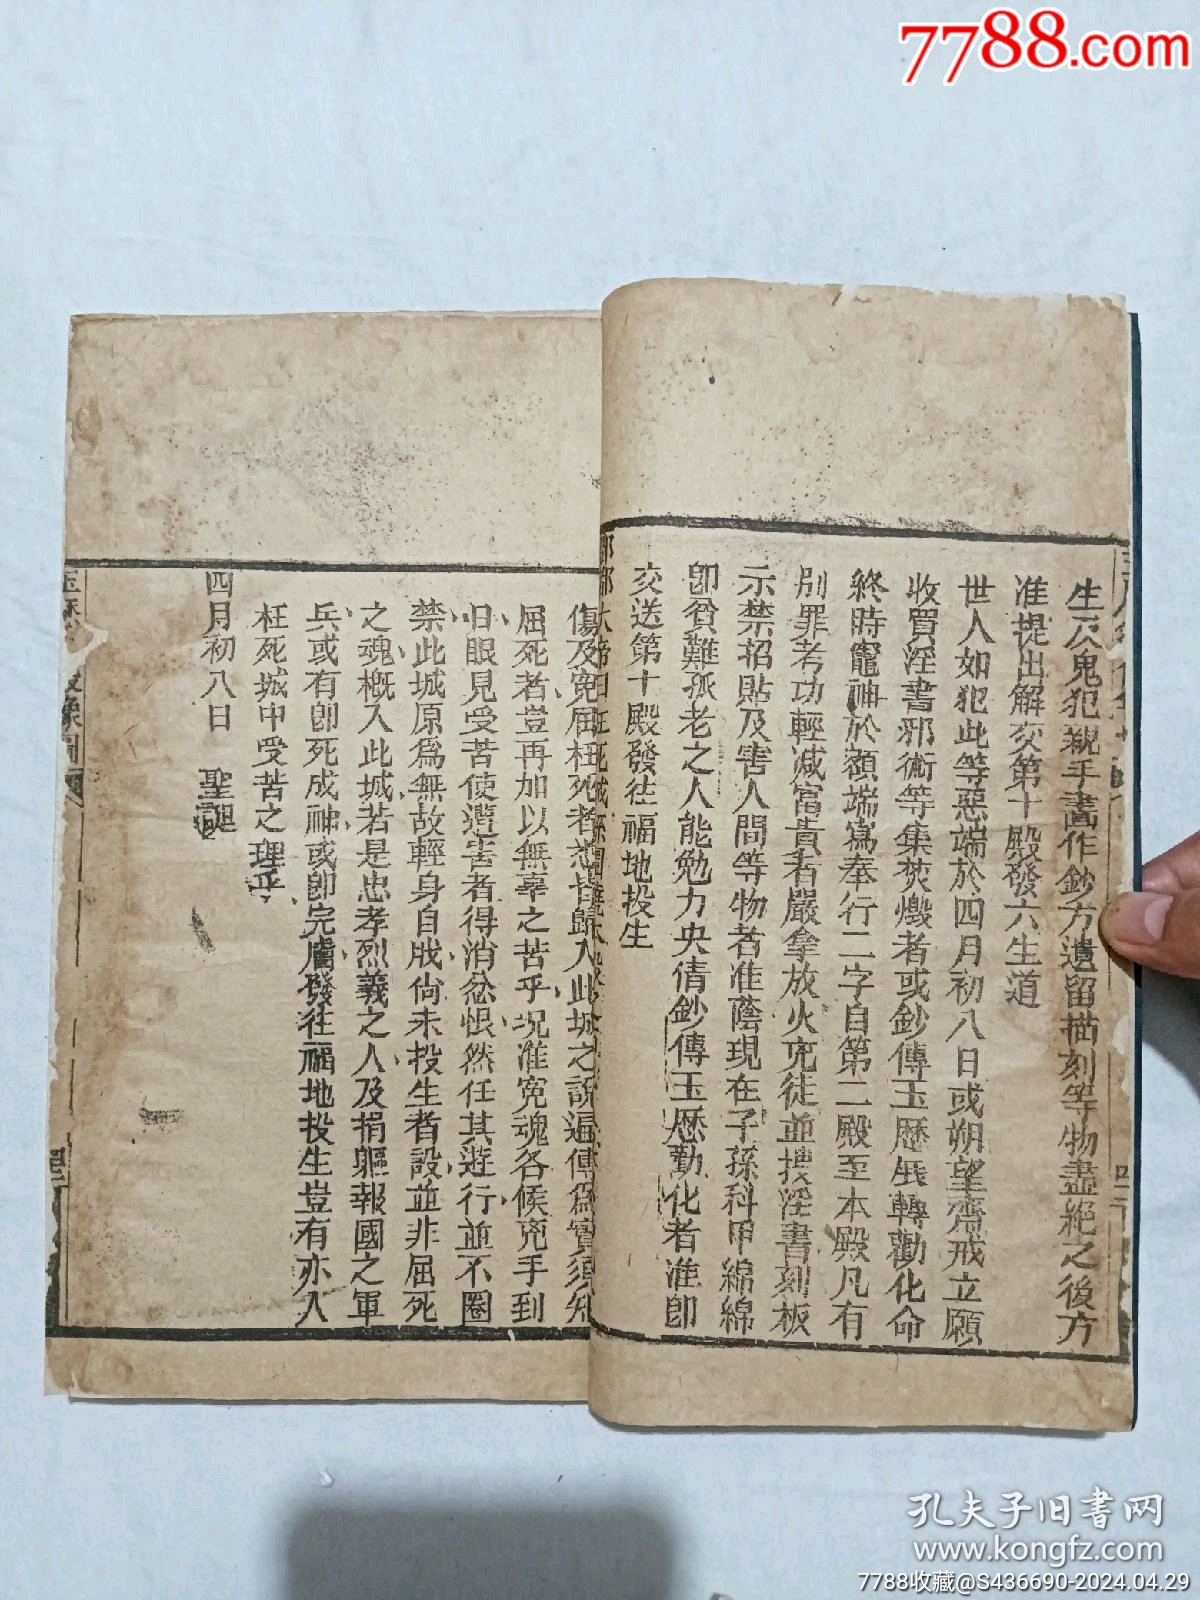 7788.com
生及鬼犯親手畫作鈔方遺留描刻等物盡絕之後方
准提出解交第十殿發六生道
世人如犯此等惡端於四月初八日或朔望齋戒立願
收買淫書邪術等集焚燬者或鈔傳玉歷展轉勸化命
終時竈神於額端寫奉行二字自第二殿至本殿凡有
別罪考功輕減富貴者嚴拿放火兇徒並搜淫書刻板
示禁招貼及害人間等物者准蔭現在子孫科甲綿綿
卽貧難孤老之人能勉力央倩鈔傳玉歷勸化者准卽
交送第十殿發往福地投生
酆都大帝曰枉死城係圍繞
傷及冤屈枉死者悉皆歸入此城之說遍傳爲實須知
屈死者豈再加以無辜之苦乎况准冤魂各候兇手到
日眼見受苦使遭害者得消忿恨然任其遊行並不圈
禁此城原爲無故輕身自戕尙未投生者設並非屈死
之魂槪入此城若是忠孝烈義之人及捐軀報國之軍
兵或有卽死成神或卽完膚發往福地投生豈有亦入
枉死城中受苦之理乎
四月初八日 聖誕
孔夫子旧书网
www.kongfz.com
7788收藏@S436690-2024.04.29